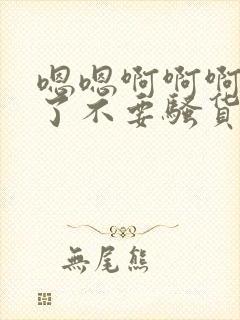 嗯嗯啊啊啊
了不要骚货
無尾熊